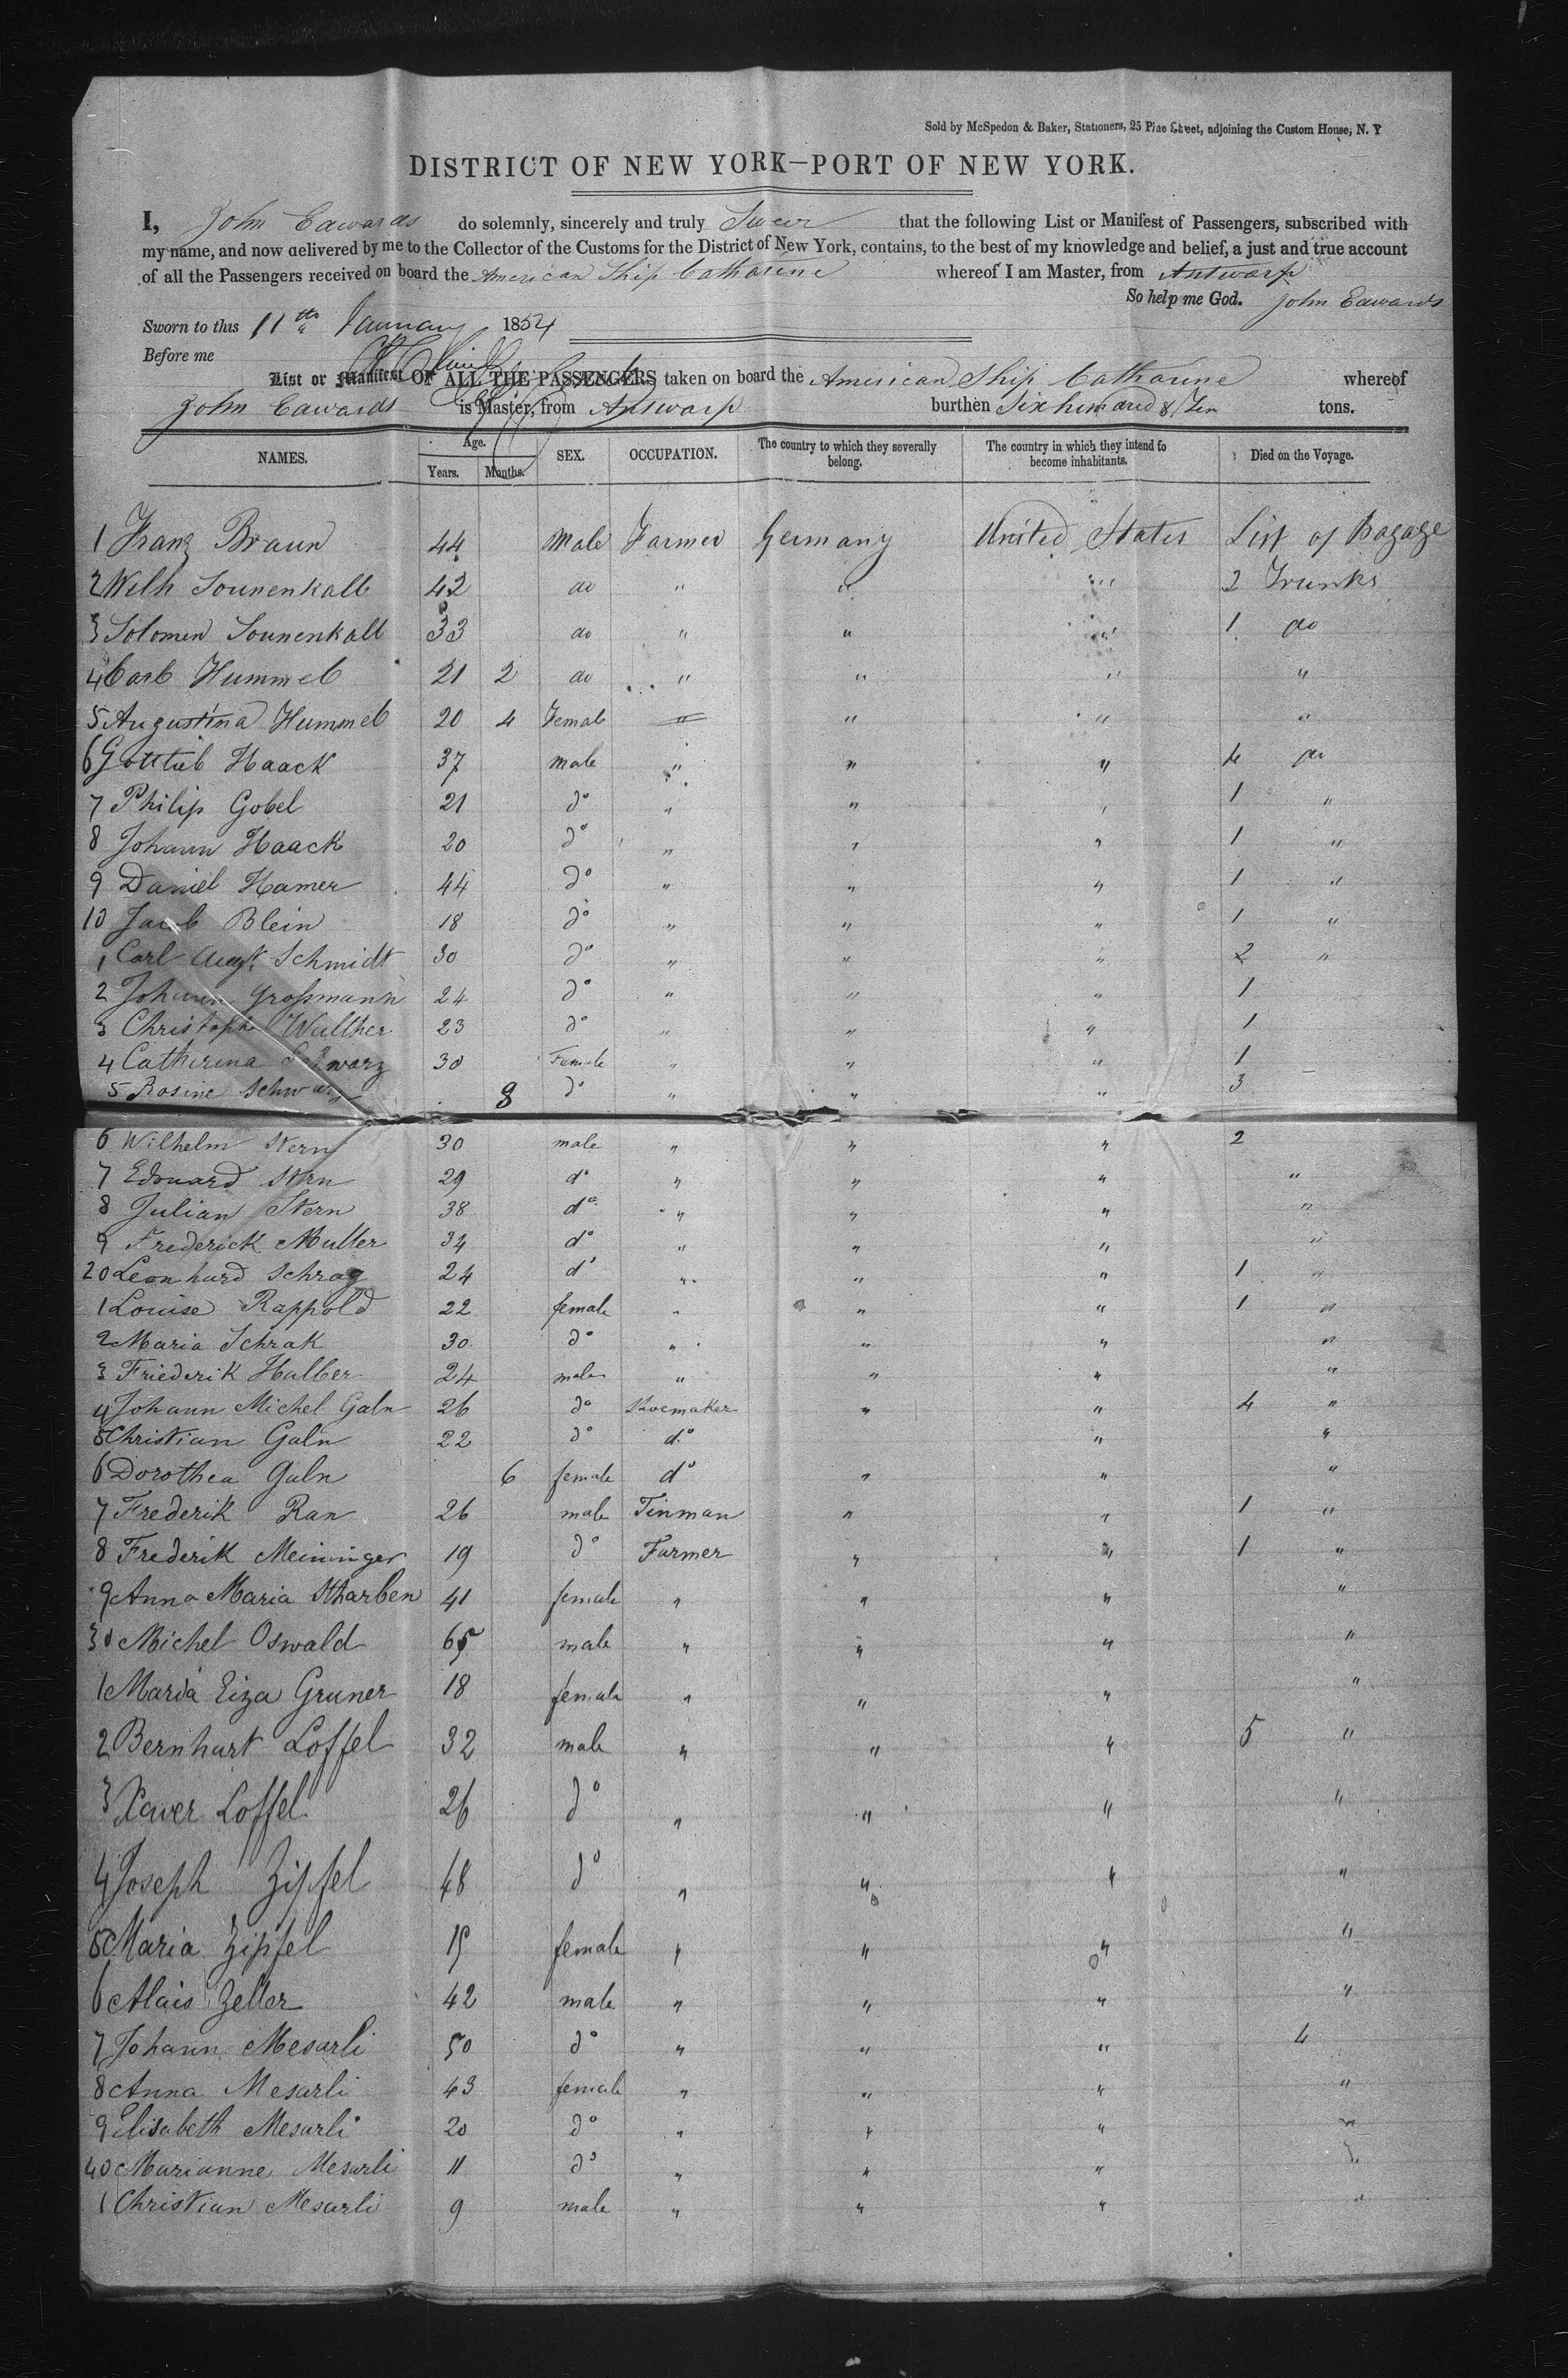 Sold by McSpedon & Baker, Stationers, 25 Pine Street, adjoining the Custom House, N. Y
DISTRICT OF NEW YORK—PORT OF NEW YORK.
I, John Edwards do solemnly, sincerely and truly Swear that the following List or Manifest of Passengers, subscribed with
my name, and now delivered by me to the Collector of the Customs for the District of New York, contains, to the best of my knowledge and belief, a just and true account
of all the Passengers received on board the American Ship Catharine whereof I am Master, from Antwarp
So help me God. John Edwards
Sworn to this 11th January 1854
Before me
List or Manifest OF ALL THE PASSENGERS taken on board the American Ship Catharine whereof
John Edwards is Master, from Antwarp burthen Six hundred & Ten tons.
NAMES. Age. Years. Months. SEX. OCCUPATION. The country to which they severally belong. The country in which they intend to become inhabitants. Died on the Voyage.
1 Franz Braun 44 Male Farmer Germany United States List of Bagage
2 Welh Sounenkalb 42 do " " " 2 Trunks
3 Solomen Sounenkalb 33 do " " " 1 do
4 Carl Hummel 21 2 do " " " "
5 Augustina Hummel 20 4 Female " " " "
6 Gottlieb Haack 37 male " " " 4 do
7 Philip Gobel 21 do " " " 1 "
8 Johann Haack 20 do " " " 1 "
9 Daniel Hamer 44 do " " " 1 "
10 Jacob Blein 18 do " " " 1 "
1 Carl Augt. Schmidt 30 do " " " 2 "
2 Johann Großmann 24 do " " " 1
3 Christoph Walther 23 do " " " 1
4 Catherina Schwarz 30 Female " " " 1
5 Rosine Schwarz 8 do " " " 3
6 Wilhelm Stern 30 male " " " 2
7 Edouard Stern 29 do " " " "
8 Julian Stern 38 do " " " "
9 Frederick Muller 34 do " " " "
20 Leonhard Schrag 24 do " " " 1 "
1 Louise Rappold 22 female " " " 1 "
2 Maria Schrak 30 do " " " "
3 Friederik Halber 24 male " " " "
4 Johann Michel Galn 26 do Shoemaker " " 4 "
5 Christian Galn 22 do do " "
6 Dorothea Galn 6 female do " " "
7 Frederik Ran 26 male Tinman " " 1 "
8 Frederik Meininger 19 do Farmer " " 1 "
9 Anna Maria Stharben 41 female " " " "
30 Michel Oswald 65 male " " " "
1 Maria Eiza Gruner 18 female " " " "
2 Bernhart Loffel 32 male " " " 5 "
3 Xaver Loffel 26 do " " " "
4 Joseph Zipfel 48 do " " " "
5 Maria Zipfel 19 female " " " "
6 Alais Zeller 42 male " " " "
7 Johann Mesarli 50 do " " " 4
8 Anna Mesarli 43 female " " " "
9 Elisabeth Mesarli 20 do " " " "
40 Marianne Mesarli 11 do " " " "
1 Christian Mesarli 9 male " " " "